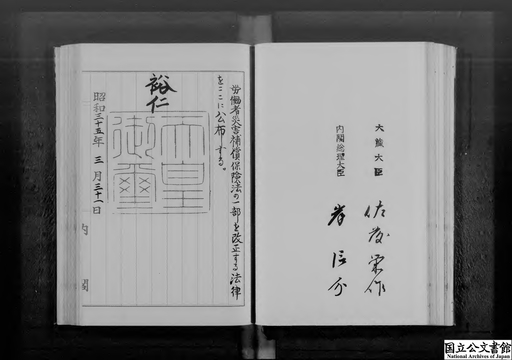 労働者災害補償保険法の一部を改正する法律
をここに公布する。
裕仁
天皇
御璽
昭和三十五年三月三十一日
内閣
大蔵大臣 佐藤栄作
内閣総理大臣 岸信介
国立公文書館
National Archives of Japan